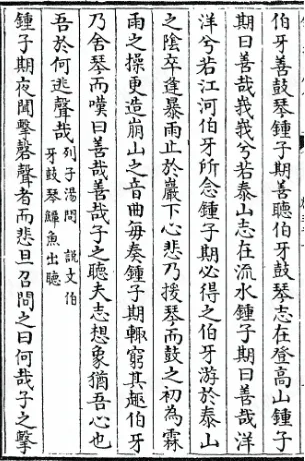 伯牙善鼓琴鍾子期善聽伯牙鼓琴志在登高山鍾子
期曰善哉峩峩兮若泰山志在流水鍾子期曰善哉洋
洋兮若江河伯牙所念鍾子期必得之伯牙游於泰山
之陰卒逢暴雨止於巖下心悲乃援琴而鼓之初為霖
雨之操更造崩山之音曲每奏鍾子期輒窮其趣伯牙
乃舍琴而嘆曰善哉善哉子之聽夫志想象猶吾心也
吾於何逃聲哉
列子湯問　說文伯
牙鼓琴鱏魚出聽
鍾子期夜聞擊磬聲者而悲旦召問之曰何哉子之擊